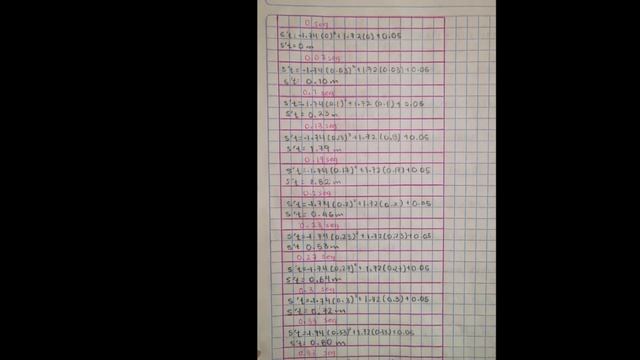 0 seg
s't=-1.74(0)²+1.72(0)+0.05
s't=0 m
0.03 seg
s't=-1.74(0.03)²+1.72(0.03)+0.05
s't= 0.10 m
0.1 seg
s't=-1.74(0.1)²+1.72(0.1)+0.05
s't= 0.23 m
0.13 seg
s't=-1.74(0.13)²+1.72(0.13)+0.05
s't= 1.79 m
0.17 seg
s't=-1.74(0.17)²+1.72(0.17)+0.05
0.2 seg
s't=-1.74(0.2)²+1.72(0.2)+0.05
s't= 0.46 m
0.23 seg
s't=-1.74(0.23)²+1.72(0.23)+0.05
s't 0.53 m
0.27 seg
s't=-1.74(0.27)²+1.72(0.27)+0.05
s't= 0.64 m
0.3 seg
s't=-1.74(0.3)²+1.72(0.3)+0.05
s't= 0.72 m
0.33 seg
s't=-1.74(0.33)²+1.72(0.33)+0.05
s't= 0.80 m